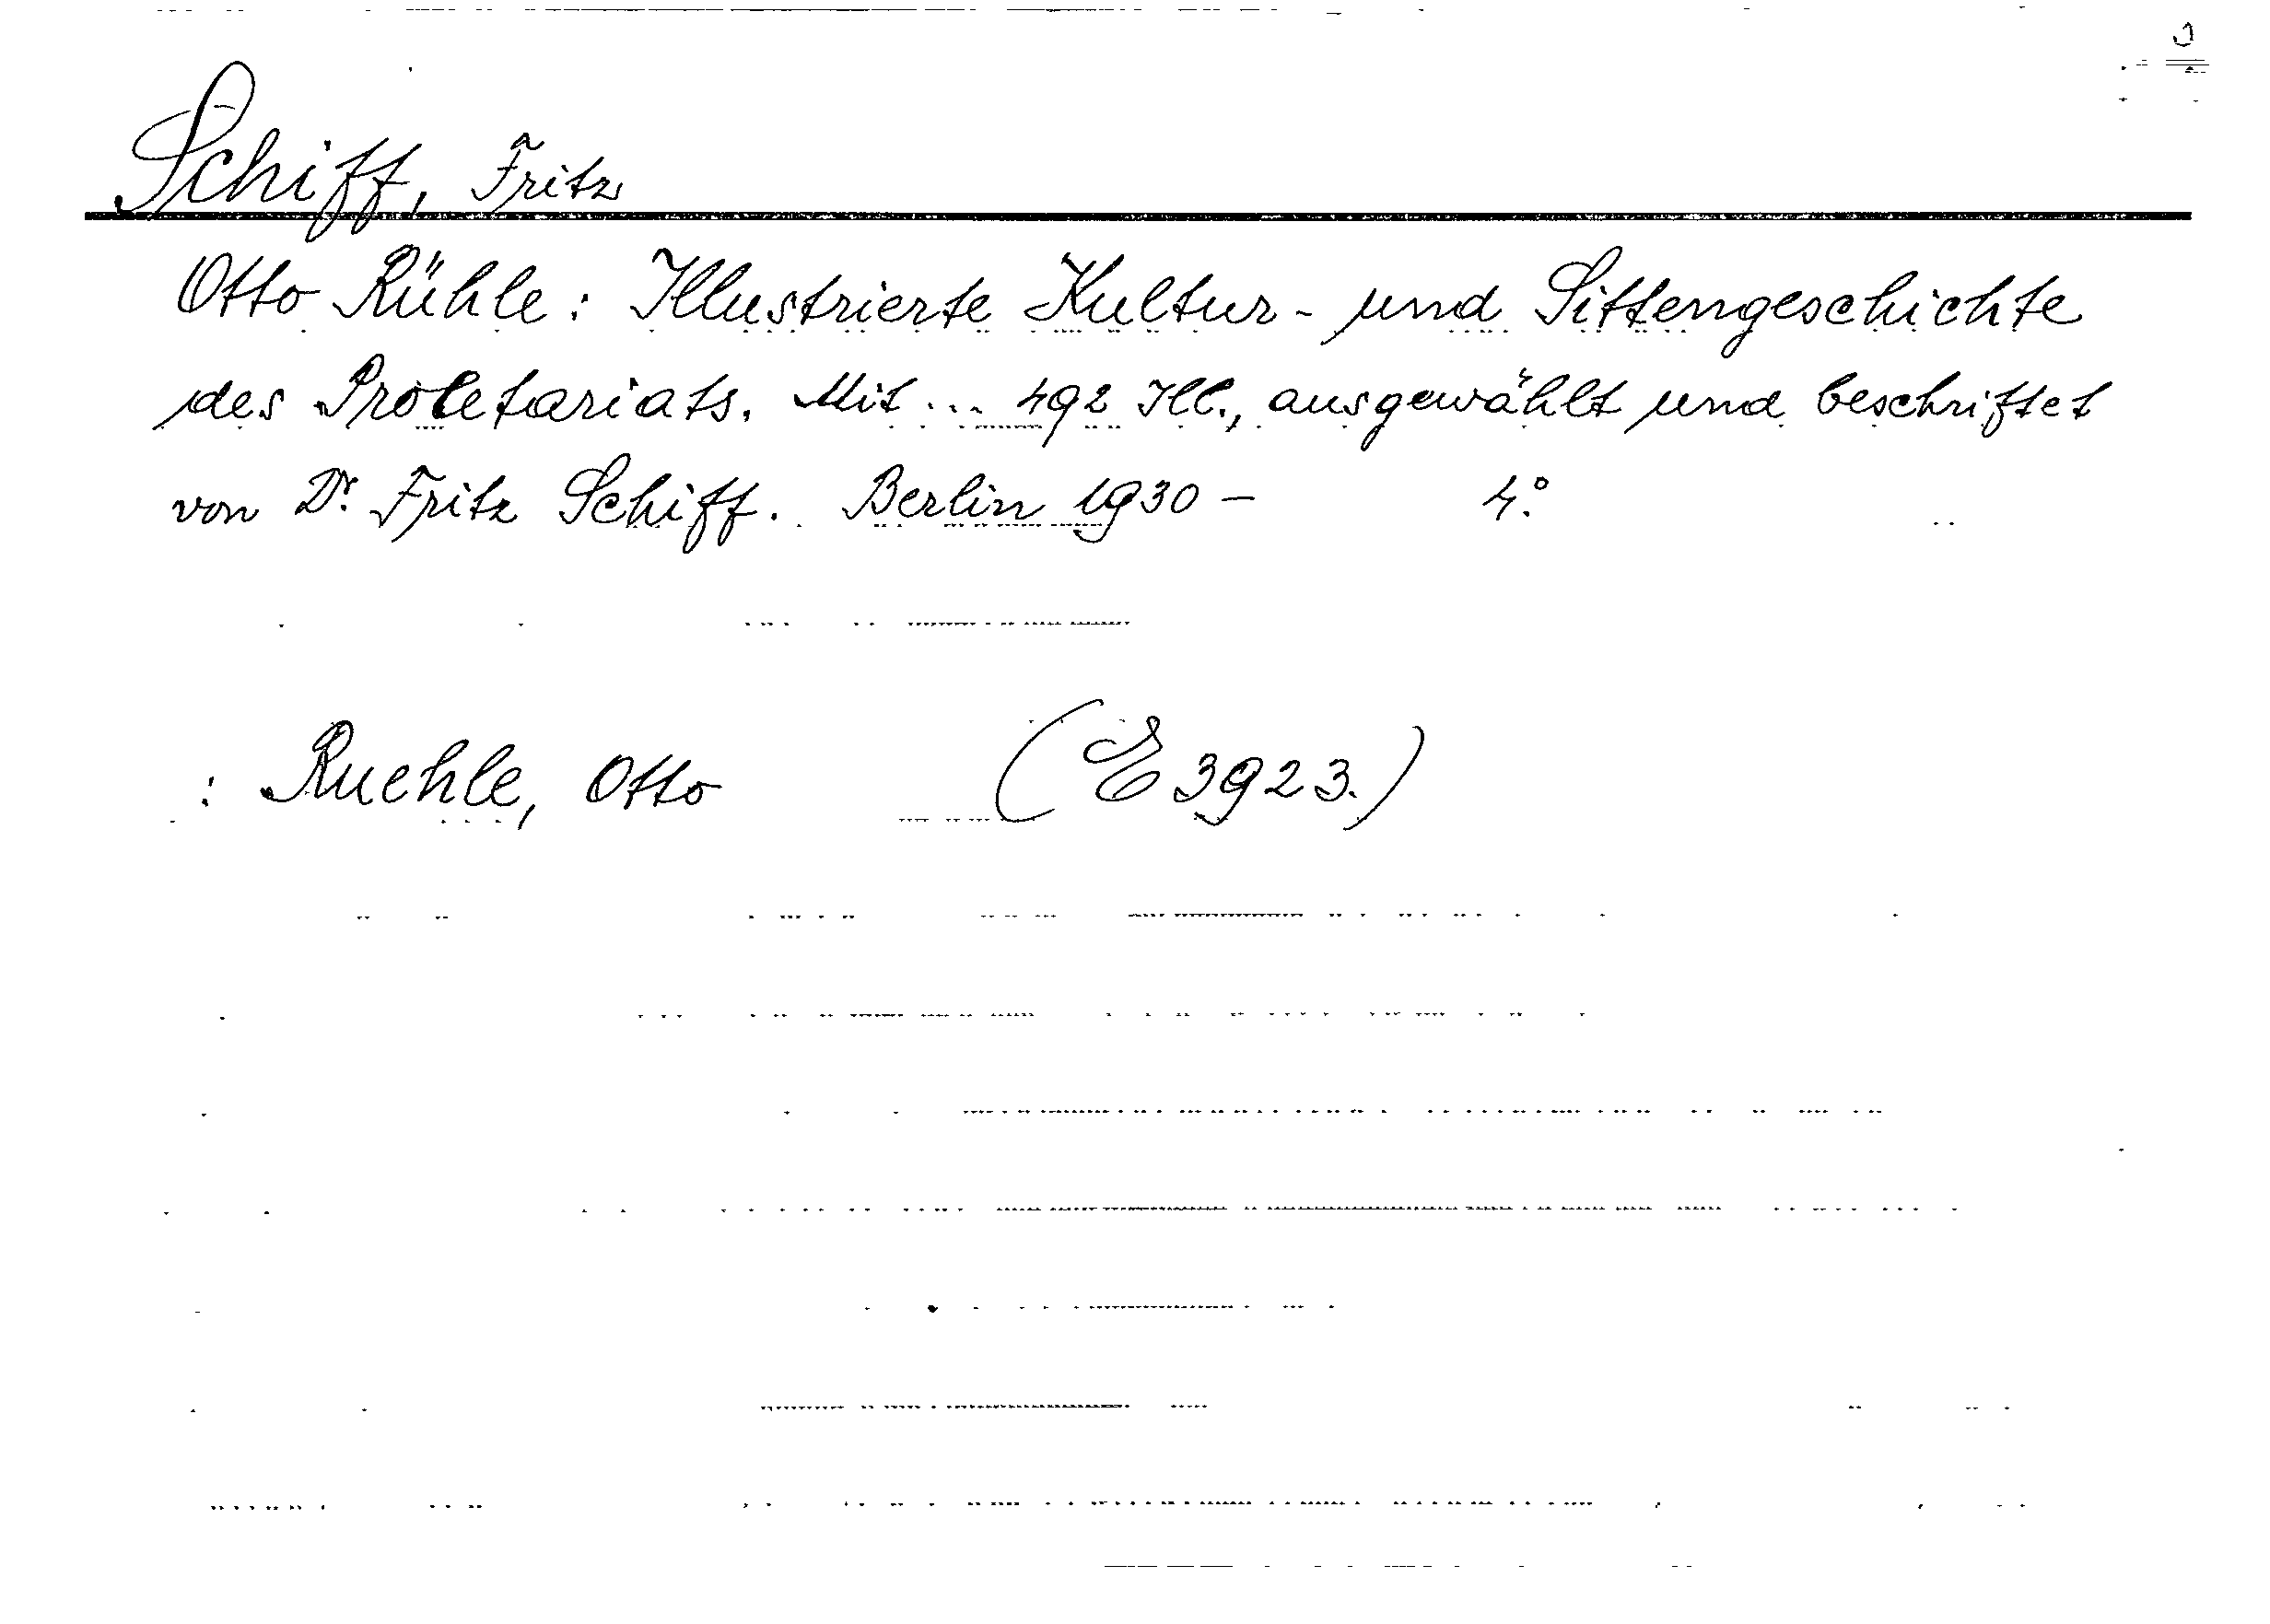 Schiff, Fritz
Otto Rühle: Illustrierte Kultur- und Sittengeschichte
des Proletariats. Mit ... 492 Ill., ausgewählt und beschriftet
von Dr. Fritz Schiff. Berlin 1930 – 4.°
: Ruehle, Otto (E 3923.)